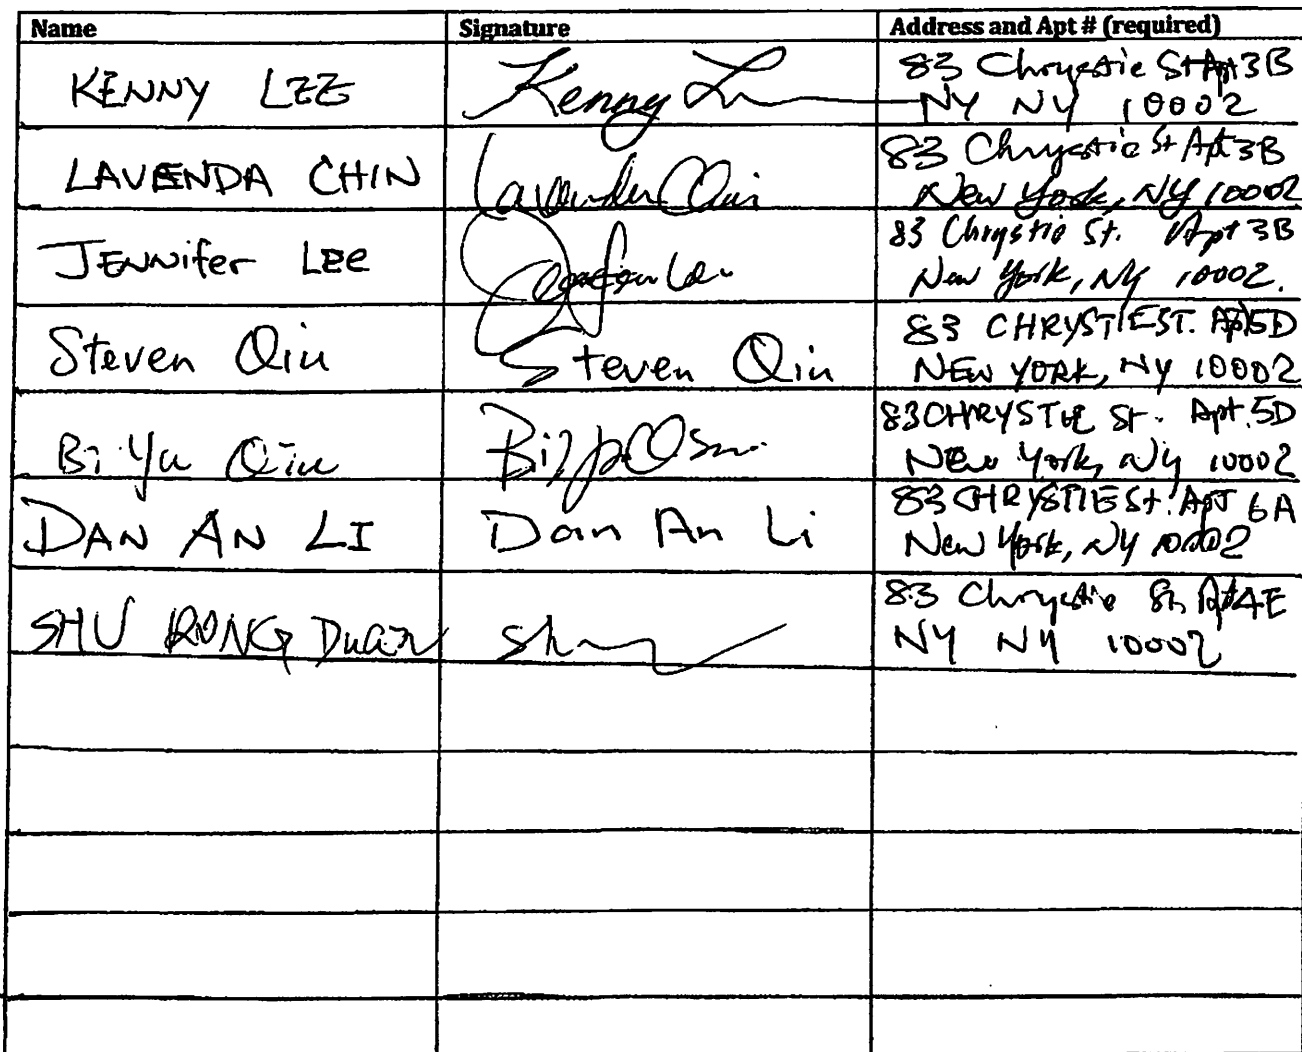 Name Signature Address and Apt # (required)
KENNY LEE Kenny L 83 Chrystie St Apt 3B
NY NY 10002
LAVENDA CHIN Lavenda Chin 83 Chrystie St Apt 3B
New York, NY 10002
JENNifer LEE 83 Chrystie St. Apt 3B
New York, NY 10002.
Steven Qiu Steven Qiu 83 CHRYSTIE ST. Apt 5D
NEW YORK, NY 10002
Bi Yu Qiu 83 CHRYSTIE St. Apt. 5D
New York, NY 10002
DAN AN LI Dan An Li 83 CHRYSTIE St. Apt 6A
New York, NY 10002
SHU RONG DuAN 83 Chrystie St Apt 4E
NY NY 10002